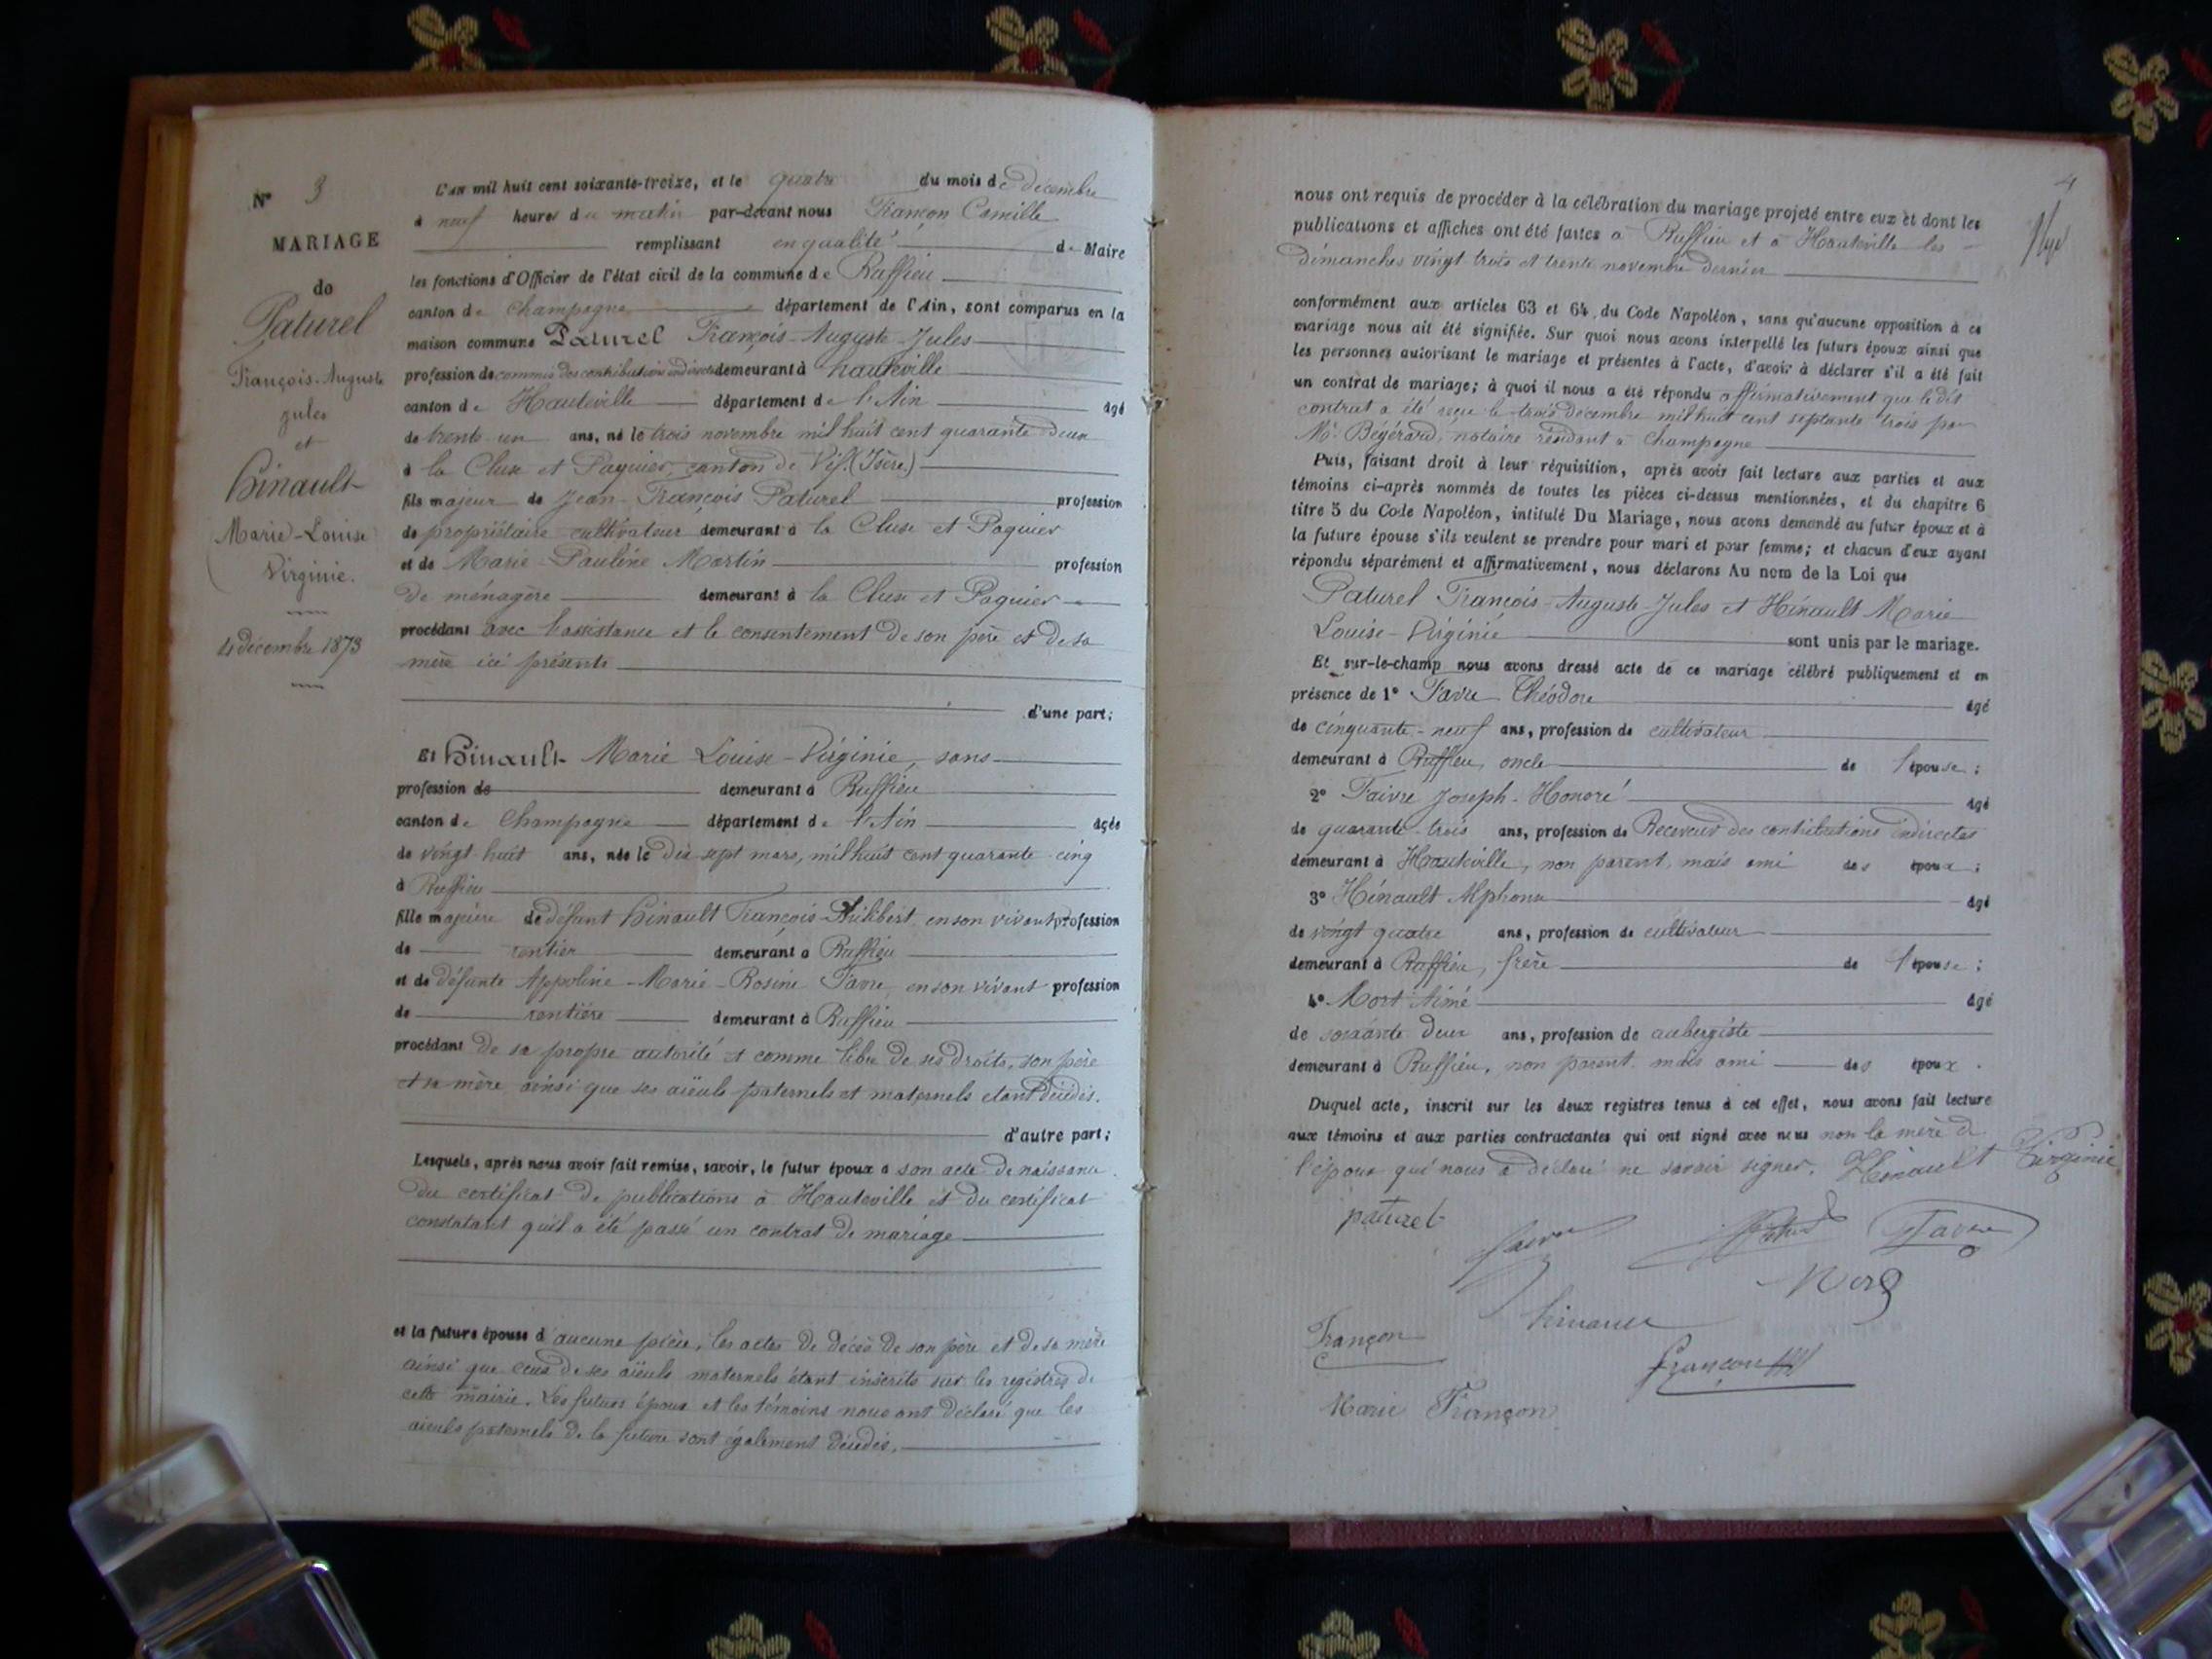 N° 3
MARIAGE
de
Paturel
François-Auguste
Jules
et
Hinault
Marie-Louise
Virginie.
4 décembre 1873
L'an mil huit cent soixante-treize, et le quatre du mois de décembre
à neuf heures du matin par-devant nous Françon Camille
remplissant en qualité de Maire
les fonctions d'Officier de l'état civil de la commune de Ruffieu
canton de Champagne département de l'Ain, sont comparus en la
maison commune Paturel François-Auguste-Jules
profession de commis des contributions indirectes demeurant à hauteville
canton de Hauteville département de l'Ain âgé
de trente un ans, né le trois novembre mil huit cent quarante deux
à la Cluse et Paquier, canton de Vif (Isère)
fils majeur de Jean-François Paturel profession
de propriétaire cultivateur demeurant à la Cluse et Paquier
et de Marie-Pauline Martin profession
de ménagère demeurant à la Cluse et Paquier
procédant avec l'assistance et le consentement de son père et de sa
mère ici présents
d'une part;
Et Hinault Marie Louise-Virginie, sans
profession de demeurant à Ruffieu
canton de Champagne département de l'Ain âgée
de vingt-huit ans, née le dix sept mars, mil huit cent quarante-cinq
à Ruffieu
fille majeure de défunt Hinault François-Philibert, en son vivant profession
de rentier demeurant à Ruffieu
et de défunte Appoline-Marie-Rosine Favre, en son vivant profession
de rentière demeurant à Ruffieu
procédant de sa propre autorité et comme libre de ses droits, son père
et sa mère ainsi que ses aïeuls paternels et maternels étant décédés.
d'autre part;
Lesquels, après nous avoir fait remise, savoir, le futur époux a son acte de naissance
du certificat de publications à Hauteville et du certificat
constatant qu'il a été passé un contrat de mariage
et la future épouse d'aucune pièce, les actes de décès de son père et de sa mère
ainsi que ceux de ses aïeuls maternels étant inscrits sur les registres de
cette mairie. Les futurs époux et les témoins nous ont déclaré que les
aïeuls paternels de la future sont également décédés.
4
nous ont requis de procéder à la célébration du mariage projeté entre eux et dont les
publications et affiches ont été faites à Ruffieu et à Hauteville les
dimanches vingt-trois et trente novembre dernier
conformément aux articles 63 et 64 du Code Napoléon, sans qu'aucune opposition à ce
mariage nous ait été signifiée. Sur quoi nous avons interpellé les futurs époux ainsi que
les personnes autorisant le mariage et présentes à l'acte, d'avoir à déclarer s'il a été fait
un contrat de mariage; à quoi il nous a été répondu affirmativement que le dit
contrat a été reçu le trois décembre mil huit cent septante trois par
Mr Bégérard, notaire résidant à Champagne
Puis, faisant droit à leur réquisition, après avoir fait lecture aux parties et aux
témoins ci-après nommés de toutes les pièces ci-dessus mentionnées, et du chapitre 6
titre 5 du Code Napoléon, intitulé Du Mariage, nous avons demandé au futur époux et à
la future épouse s'ils veulent se prendre pour mari et pour femme; et chacun d'eux ayant
répondu séparément et affirmativement, nous déclarons Au nom de la Loi que
Paturel François-Auguste-Jules et Hinault Marie
Louise-Virginie sont unis par le mariage.
Et sur-le-champ nous avons dressé acte de ce mariage célébré publiquement et en
présence de 1° Favre Théodore âgé
de cinquante-neuf ans, profession de cultivateur
demeurant à Ruffieu, oncle de l'épouse;
2° Faivre Joseph-Honoré âgé
de quarante-trois ans, profession de Receveur des contributions indirectes
demeurant à Hauteville, non parent, mais ami des époux;
3° Hénault Alphonse âgé
de vingt quatre ans, profession de cultivateur
demeurant à Ruffieu, frère de l'épouse;
4° Mort Aimé âgé
de soixante deux ans, profession de aubergiste
demeurant à Ruffieu, non parent mais ami des époux.
Duquel acte, inscrit sur les deux registres tenus à cet effet, nous avons fait lecture
aux témoins et aux parties contractantes qui ont signé avec nous non la mère de
l'époux qui nous a déclaré ne savoir signer. Hénault Virginie
paturel
Favre
hinault
Françon
Françon
Marie Françon